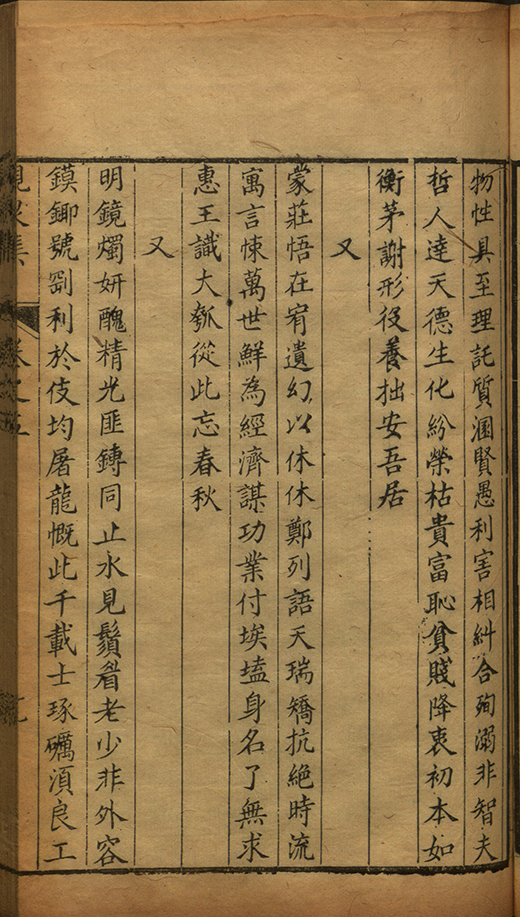 物性具至理託質溷賢愚利害相糾合殉溺非智夫
哲人達天德生化紛榮枯貴富恥貧賤降衷初本如
衡茅謝形役養拙安吾居
又
蒙莊悟在宥遺幻以休休鄭列語天瑞矯抗絶時流
寓言悚萬世鮮為經濟謀功業付埃壒身名了無求
惠王識大瓠從此忘春秋
又
明鏡燭妍醜精光匪鑄同止水見鬚眉老少非外容
鏌鎁號剸利於伎均屠龍慨此千載士琢礪湏良工